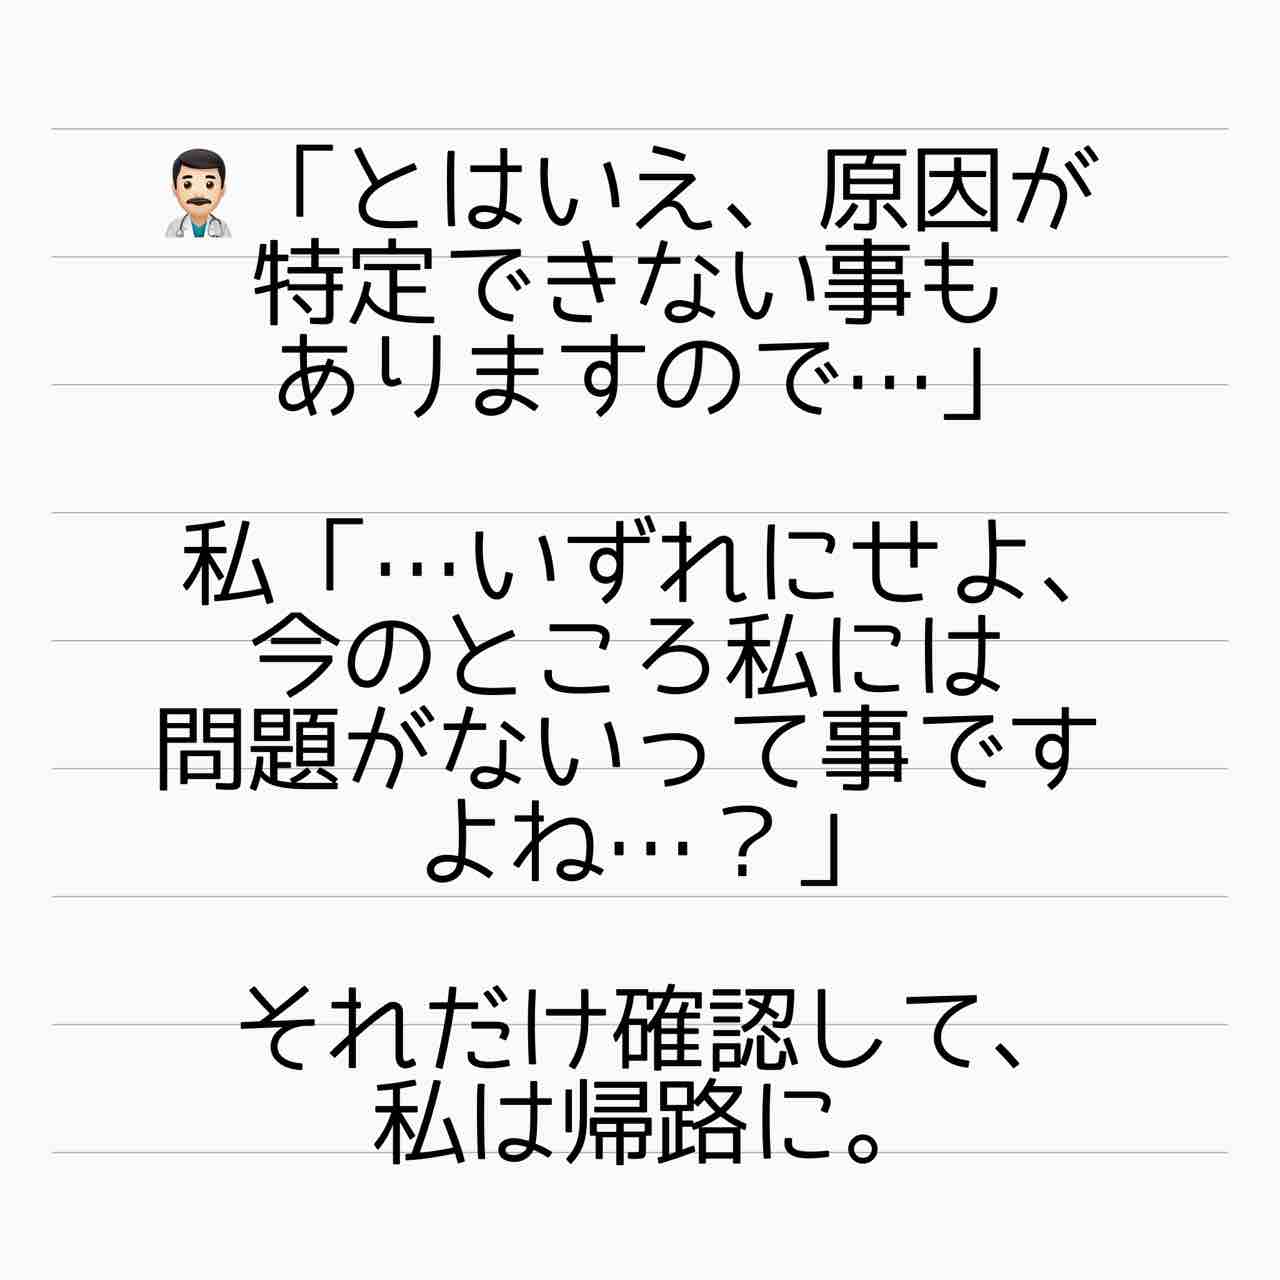 👨🏻‍⚕️「とはいえ、原因が
特定できない事も
ありますので…」
私「…いずれにせよ、
今のところ私には
問題がないって事です
よね…？」
それだけ確認して、
私は帰路に。